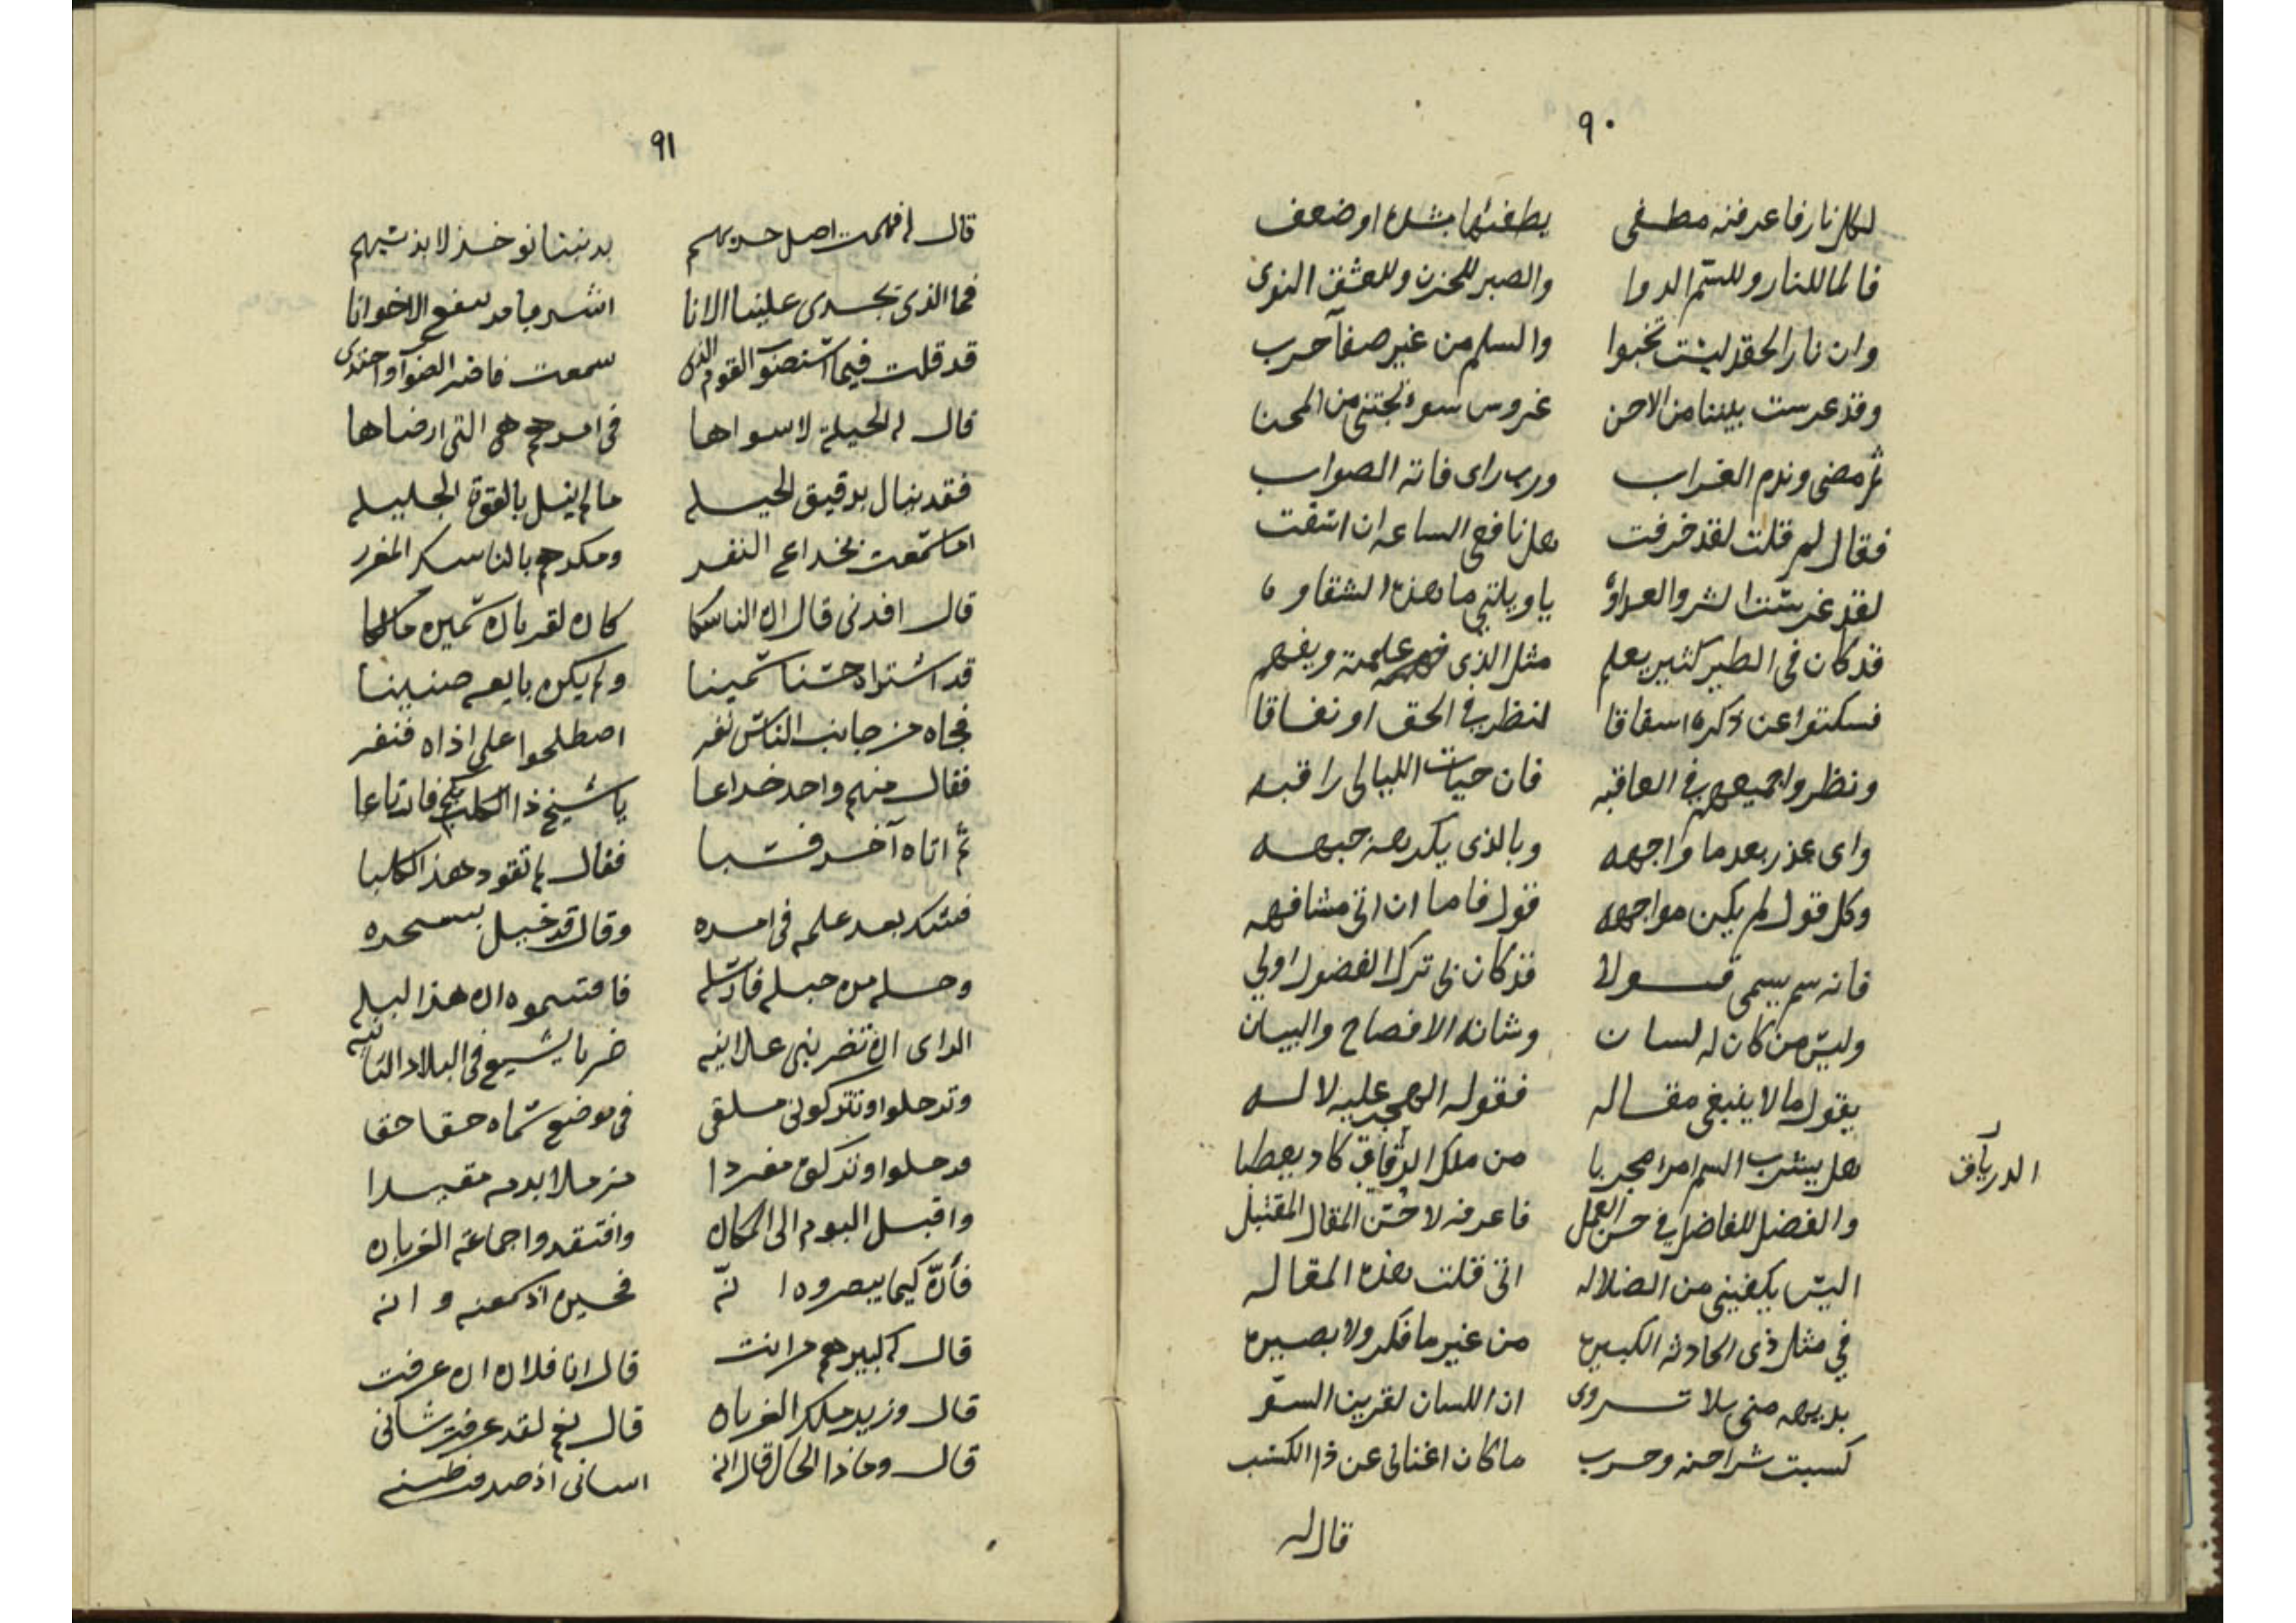 ٩٠
لكل نار فاعرفنه مطفى يطفئها بشدة او ضعف
فالما للنار وللسّم الدوا والصبر للحزن وللعشق النوى
وان نار الحقد ليست تخبوا والسلم من غير صفآ حرب
وقد غرست بيننا من الاحن غروس سوء تجتنى من المحن
ثم مضى وندم الغراب ورب راى فاته الصواب
فقال لم قلت لقد خرفت هل نافعى الساعة ان اسفت
لقد غرست الشر والعداوة يا ويلتى ما هذه الشقاوة
قد كان فى الطير كثير يعلم مثل الذى علمته ويفهم
فسكتوا عن ذكره اسفاقا لنظر فى الحق او نفاقا
ونظروا جميعهم فى العاقبه فان حيات الليالى راقبه
واى عذر بعدما واجهه وبالذى يكرهه جبهه
وكل قول لم يكن مواجهه قول فاما ان اتى مشافهه
فانه سم يسمى قولا قد كان لى ترك الفضول اولى
وليس من كان له لسان وشانه الافصاح والبيان
يقول ما لا ينبغى مقاله فقوله الهجر عليه لا له
هل يشرب السم امرا مجربا من ملك الرقاق كاد يعطبا
الدرياق
والفضل للفاضل فى حسن العمل فاعرفه لا حسن المقال المقتبل
اليس يكفينى من الضلاله انى قلت هذه المقاله
فى مثل ذى الحادثه الكبيره من غير ما فكر ولا بصيره
بديهه منى بلا تروى ان اللسان لقرين السوّ
كسبت شرا حنه وحرب ما كان اغنانى عن ذا الكسب
قال له
٩١
قال لم فهمت اصل حربهم بدننا نوخذ لا بذنبهم
فما الذى تجدى علينا الانا اشر بما قد ينفع الاخوانا
قد قلت فيما استضوّ القوم الذى سمعت فاضر الضوآ واحتذى
قال له الحيلة لا سواها فى امرهم هى التى ارضاها
فقد ينال بدقيق الحيله ما لم ينل بالقوة الجليله
اما سمعت بخداع النفر ومكرهم بالناسك المغرر
قال افدنى قال ان الناسكا كان لقربان سمين مالكا
قد اشتراه حسنا سمينا ولم يكن بايعه ضنينا
فجاه من جانب الناس نفر اصطلحوا على اذاه فنفر
فقال منهم واحد خداعا يا شيخ ذا الكلب فارتاعا
ثم اتاه آخر فتبا فقال لم تقود هذا الكلبا
فشك بعد علمه فى امره وقال قد خيل بسحره
وحله من حبله فارسله فاقتسموه ان هذا البله
الراى ان تضربنى علانيه ضربا يشيع فى البلاد النائيه
وترحلوا وتتركونى ملقى فى موضع سماه حقا حقا
فرحلوا وتركوه مفردا مزملا بدمه مقيدا
واقبل البوم الى المكان وافتقدوا جماعة الغربان
فأنّ كيما يبصروه انّه فحين اذ سمعنه وانه
قال كبيرهم من انت قال انا فلان ان عرفت
قال وزير ملك الغربان قال نعم لقد عرفت شانى
قال وماذا الحال قال انه اسانى اذ صدقت ظنه